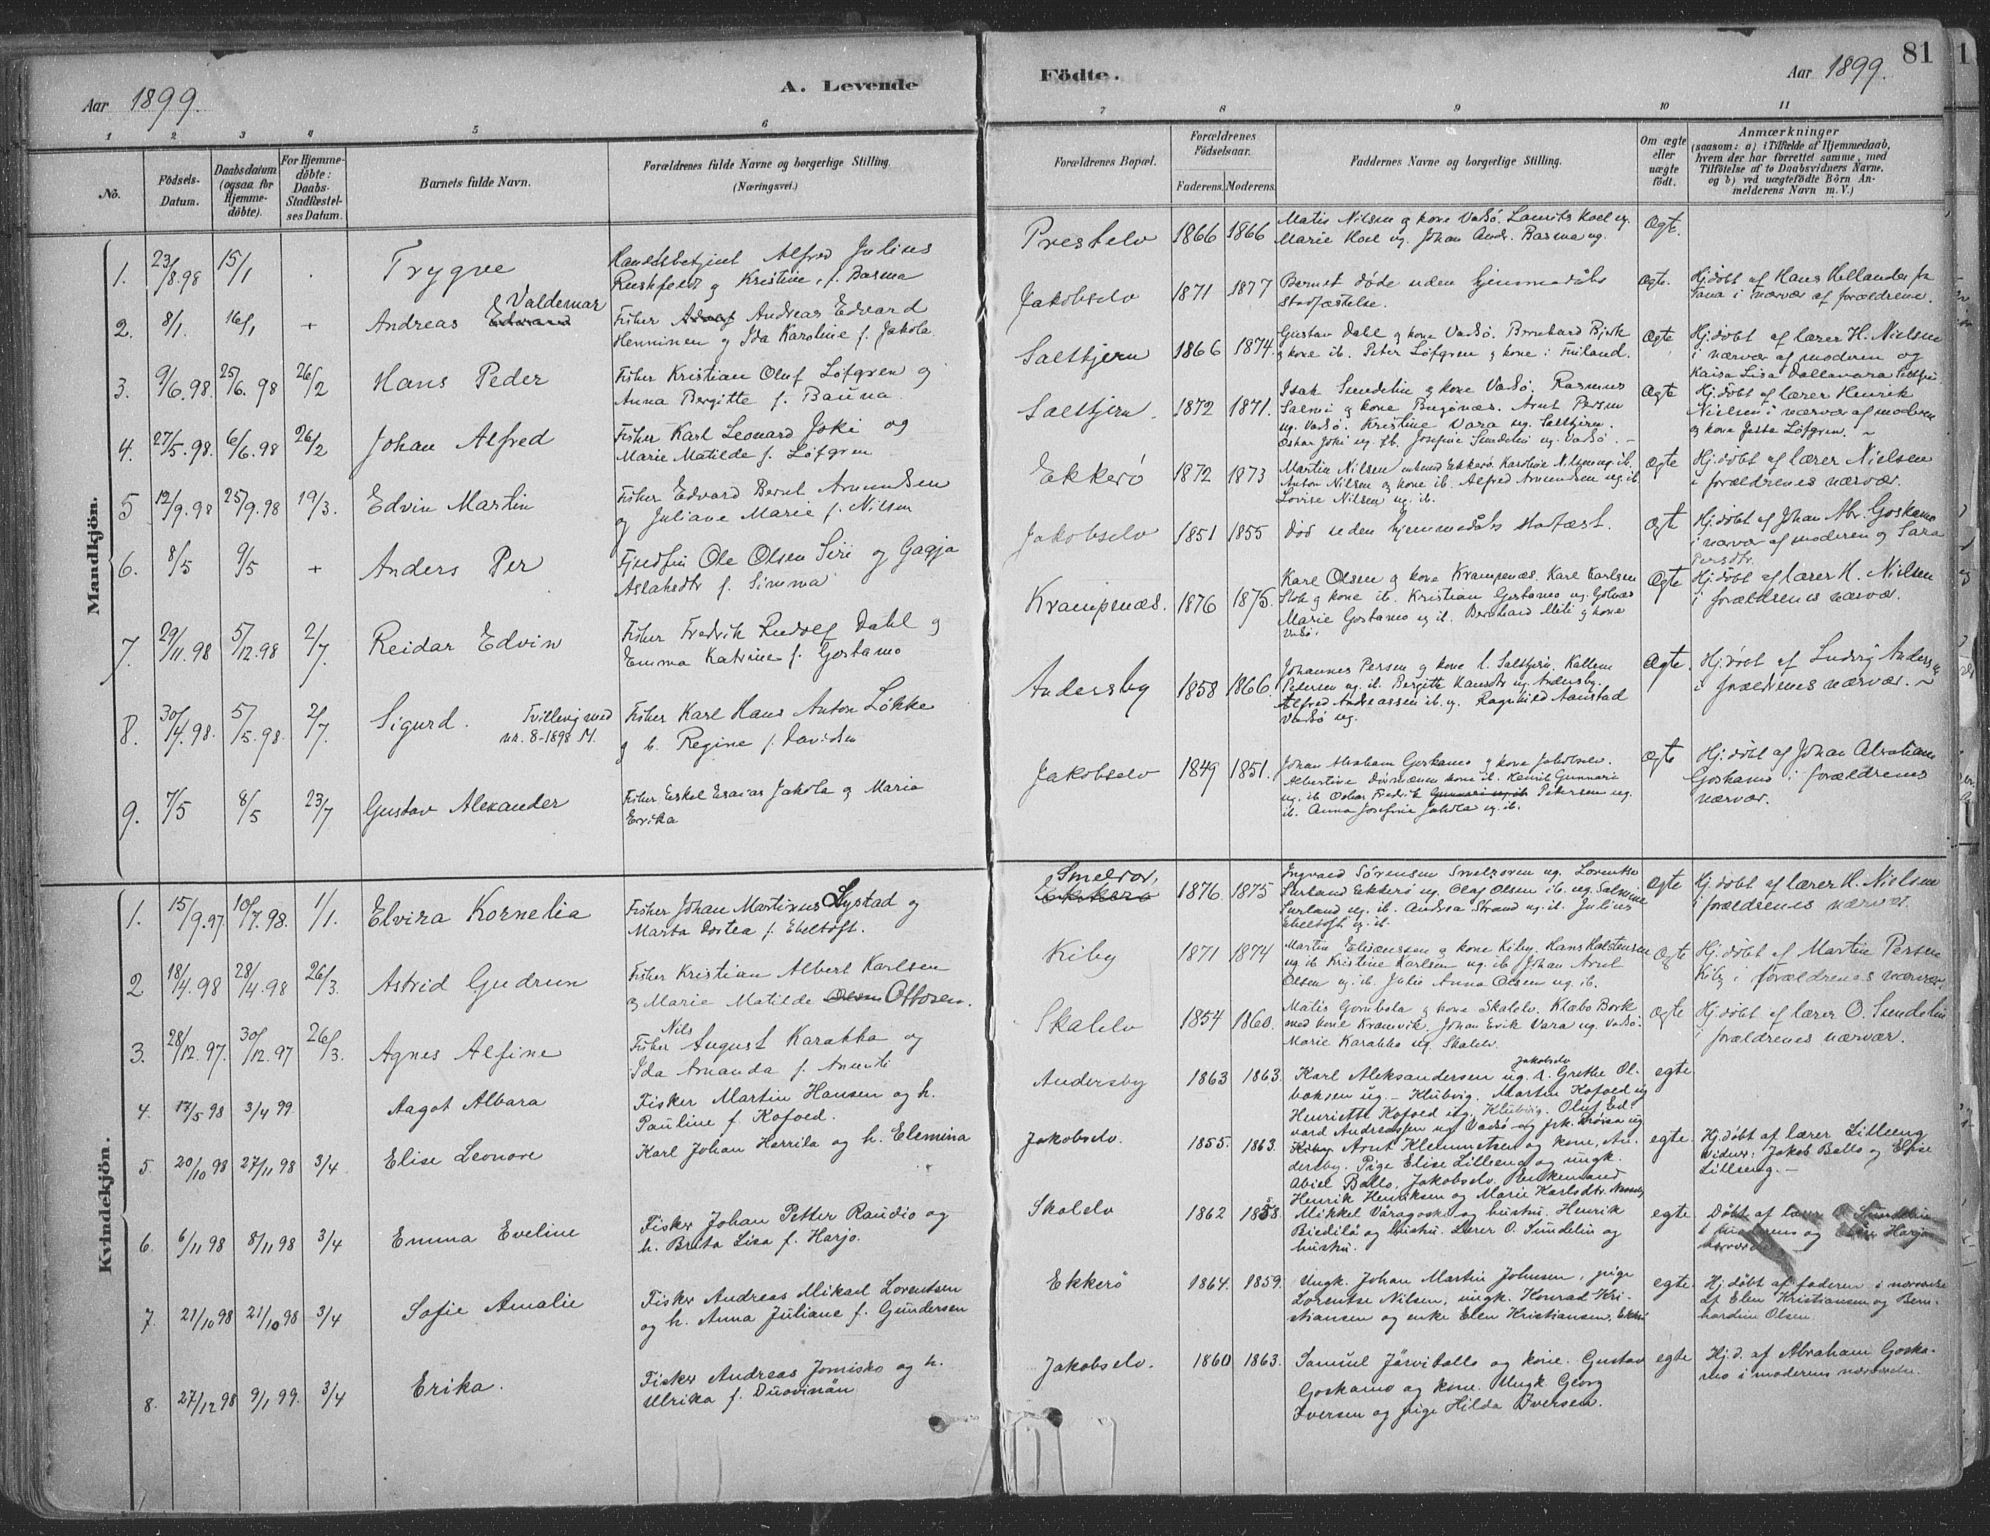 81
Aar 1899.
A. Levende
Födte.
Aar 1899.
1 2 3 4 5 6 7 8 9 10 11
No.
Födsels-Datum.
Daabsdatum (ogsaa for Hjemme-döbte).
For Hjemme-döbte: Daabs-Stadfæstel-ses Datum.
Barnets fulde Navn.
Forældrenes fulde Navne og borgerlige Stilling. (Næringsvei.)
Forældrenes Bopæl.
Forældrenes Födselsaar.
Faderens. Moderens.
Faddernes Navne og borgerlige Stilling.
Om ægte eller uægte födt.
Anmærkninger
(saasom: a) i Tilfælde af Hjemmedaab, hvem der har forrettet samme, med Tilföielse af to Daabsvidners Navne, og b) ved uægtefödte Börn An-melderens Navn m. V.)
Mandkjön.
1. 23/8.98 15/1 . Trygve
Handelsbetjent Alfred Julius
Rushfeldt og Kristine, f. Basma
Prestelv 1866 1866
Matis Nilsen og kone Vadsø. Lauritz Koel ug.
Marie Koel ug. Johan Andr. Basma ug.
Ægte.
2. 8/1. 16/1 + Andreas Edvard Valdemar
Fisker Adolf Andreas Edvard
Henninen og Ida Karoline f. Jakola.
Jakobselv 1871 1877
Barnet døde uden hjemmedåbs
stadfæstelse.
Ægte.
Hj.døbt af Hans Hellander fra
Tana i nærvær af forældrene.
3. 9/6.98 25/6.98 26/2 Hans Peder
Fisker Kristian Oluf Löfgren og
Anna Bergitte f. Bauna.
Saltbjern 1866 1874.
Gustav Dahl og kone Vadsø. Bernhard Bjerk
og kone ib. Peter Löfgren og kone i Finland.
Ægte
Hj.døbt af lærer H. Nielsen
i nærvær af moderen og
Kaisa Lisa Dallavara
4. 27/5.98. 6/6.98 26/2 Johan Alfred
Fisker Karl Leonard Joki og
Marie Matilde f. Löfgren
Saltbjern. 1872 1871.
Isak Sundelin og kone Vadsø. Rasmus
Salmi og kone Bugönæs. Arnt Persen
ug. Vadsø. Kristine Vara ug. Saltbjern.
Oskar Joki ug. ib. Josefine Sundelin ug. Vadsø.
Ægte
Hj.døbt af lærer Henrik
Nielsen i nærvær af moderen
og kone Löfgren.
5 12/9.98 25/9.98 19/3. Edvin Martin
Fisker Edvard Bernt Amundsen
og Juliane Marie f. Nilsen
Ekkerö 1872 1873
Martin Nilsen Ekkerö. Karoline Nilsen ug. ib.
Anton Nilsen og kone ib. Alfred Amundsen ug. ib
Lovise Nilsen ug. ib.
Ægte
Hj.døbt af lærer Nielsen
i forældrenes nærvær.
6. 8/5 9/5 + Anders Per
Fjeldfin Ole Olsen Siri og Gagja
Aslaksdtr f. Simma
Jakobselv 1851 1855
Död uden hjemmedåbs stadfæst.
Ægte
Hj.døbt af Johan Abr. Goskamo
i nærvær af moderen og Sara
Persdtr.
7. 29/11.98 5/12.98 2/7 Reidar Edvin
Fisher Fredrik Rudolf Dahl og
Emma Katrine f. Goskamo
Krampenæs. 1876 1875.
Karl Olsen og kone Krampenæs. Karl Karlsen
Stok og kone ib. Kristian Goskamo ug. Golnæs
Marie Goskamo ug. ib. Bernhard Miti og kone
Vadsø.
Ægte
Hj.døbt af lærer H. Nielsen
i forældrenes nærvær.
8. 30/4.98. 5/5.98. 2/7. Sigurd. Tvilling med
nr. 8-1898 M.
Fisher Karl Hans Anton Lökke
og h. Regine f. Davidsen
Andersby 1858 1866.
Johannes Persen og kone l. Saltbjern.
Petersen ug. ib. Bergitte Hansdtr ug. Andersby.
Alfred Andreassen ib. ug. Ragnhild Aanstad
Vadsø ug.
Ægte.
Hj.døbt af Ludvig Anders
i forældrenes nærvær.
9. 7/5 8/5 23/7 Gustav Alexander
Fisher Eskel Esaias Jakola og Maria
Ervika
Jakobselv 1849 1851.
Johan Abraham Goskamo og kone Jakobselv.
Albertine kone ib. Henrik Gunnari
ug. ib. Oskar Fredrik Gunnari ug. ib Petersen ug.
ib. Anna Josefine Jakola ug. ib.
Ægte
Hj.døbt af Johan Abraham
Goskamo i forældrenes
nærvær.
Kvindekjön.
1. 15/9.97. 10/7.98. 1/1. Elvira Kornelia
Fisher Johan Martinus Systad og
Marta Dortea f. Ebeltoft.
Smelror, Ekkerø 1876. 1875
Ingvald Sörensen Smelroren ug. Lorentse
Surland Ekkerö ug. Olaf Olsen ib. ug. Salmine
Surland ug. ib. Andrea Strand ug. ib. Julius
Ebeltoft ug. ib.
Ægte
Hj.døbt af lærer H. Nielsen
i forældrenes nærvær.
2 18/4.98 28/4.98 26/3. Astrid Gudrun
Fisher Kristian Albert Karlsen
og Marie Matilde Olsen Ottosen.
Kiby 1871 1874
Martin Eliassen og kone Kiby. Hans Karlsen
ug. ib Kristine Karlsen ug. ib Johan Arnt
Olsen ug. ib. Julie Anna Olsen ug. ib.
Ægte
Hj.døbt af Martin Persen
Kiby i forældrenes nærvær.
3. 28/12.97. 30/12.97 26/3. Agnes Alfine
Fisher Nils August Karakka og
Ida Amanda f. Ananti
Skalelv 1854 1860.
Matis Gornbola og kone Skalelv. Klæbo Bork
med kone Kramvik. Johan Erik Vara ug. Vadsø.
Marie Karakka ug. Skalelv.
Ægte
Hj.døbt af lærer O. Sundelin
i forældrenes nærvær.
4. 17/5 98 3/4 99. Aagot Albara
Fisker Martin Hansen og h.
Pauline f. Kofoed.
Andersby 1863 1863.
Karl Aleksandersen ug. Jakobselv. Grethe Ol-
baksen ug. - Klubvig. Martin Kofoed ug
Henriette Kofoed ug. Klubvig. Oluf Ed-
vard Andreassen ug. Vadsø og
Kiby
egte
5. 20/10 98 27/11 98 3/4. Elise Leonore
Karl Johan Herrila og h. Elemina
Jakobselv. 1855. 1863.
Arnt Klemmetsen og kone, An-
dersby. Pige Elise Lilleeng og ungk.
Abiel Ballo, Jakobselv. Enkemand
Henrik Henriksen og Marie Karlsdtr.
egte.
Hj.døbt af lærer Lilleeng
Vidner: Jakob Ballo og Elise
Lilleeng.-
6. 6/11 98 8/11 98 3/4 Emma Eveline
Fisker Johan Petter Raudio og
h. Brita Lisa f. Harjo.
Skalelv 1862 1858.
Mikkel Våragoski og hustru. Henrik
Biedilä og hustru. Lærer O. Sundelin og
hustru.
egte.
Döbt af lærer O. Sundelin
i moderens og Harjo
nærværelse
7. 21/10 98 21/10 98 3/4 Sofie Amalie
Fisker Andreas Mikael Lorentsen
og h. Anna Juliane f. Gundersen
Ekkerö 1864. 1859.
Ungk. Johan Martin Johnsen, pige
Lorentse Nilsen, ungk. Konrad Kri-
stiansen og enke Elen Kristiansen, Ekkerö
egte
Hj.døbt af faderen i nærværelse
af Elen Kristiansen og Bern-
hardine Olsen.
8. 27/12 98 9/1 99. 3/4 Erika.
Fisker Andreas Jomisko og h.
Ulrika f. Duovinän
Jakobselv. 1860 1863.
Samuel Järvitallo og kone. Gustav
Goskamo og kone. Ungk. Georg
Iversen og pige Hilda Iversen.
egte
Hj.d. af Abraham Goska-
mo i moderens nærværelse.